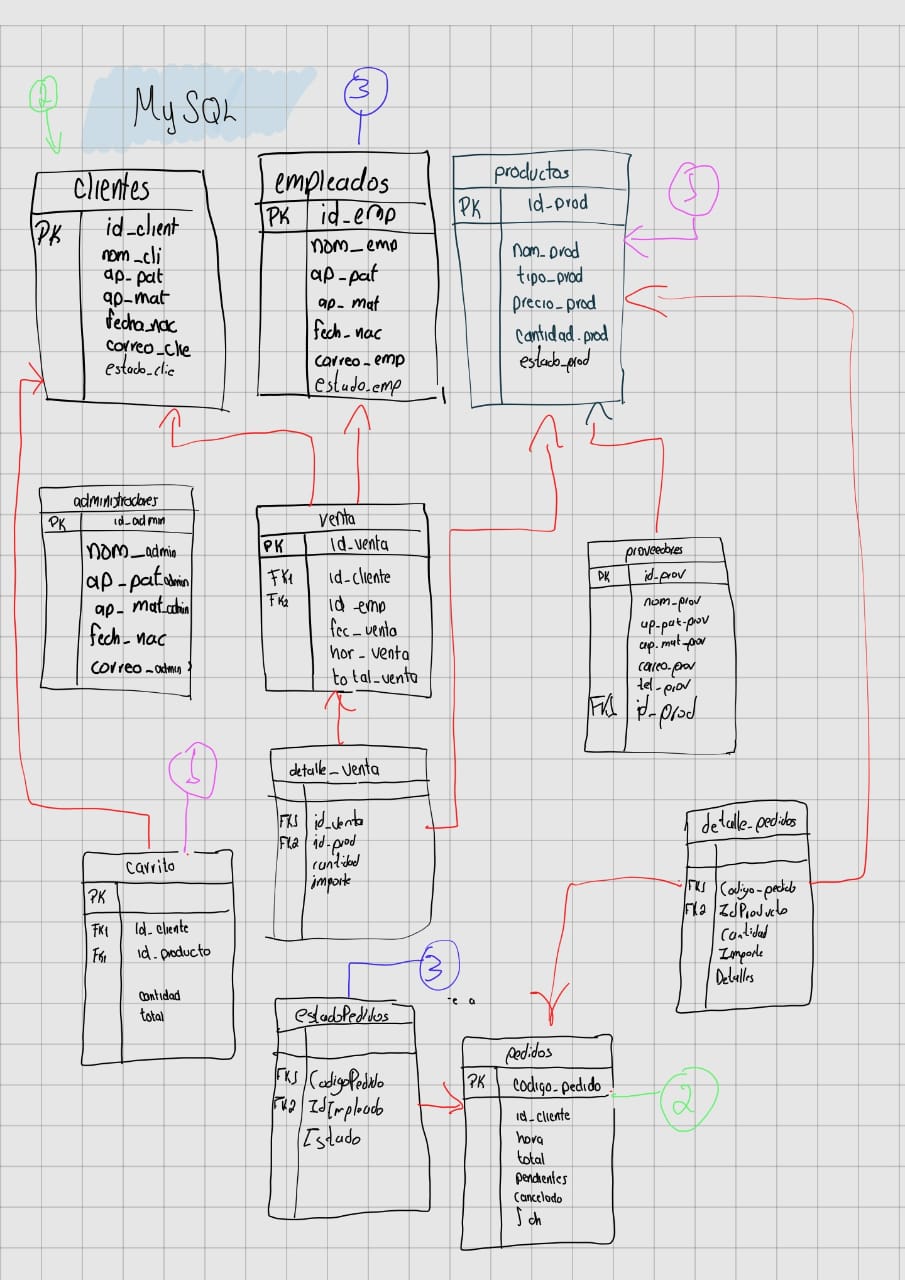 2
MySQL
3
clientes
PK id_client
nom_cli
ap_pat
ap_mat
fecha_nac
correo_clie
estado_clie
empleados
PK id_emp
nom_emp
ap_pat
ap_mat
fech_nac
correo_emp
estado_emp
productos
PK id_prod
nom_prod
tipo_prod
precio_prod
cantidad_prod
estado_prod
1
administradores
PK id_admin
nom_admin
ap_pat_admin
ap_mat_admin
fech_nac
correo_admin
venta
PK Id_venta
FK1 id_cliente
FK2 id_emp
fec_venta
hor_venta
total_venta
proveedores
PK id_prov
nom_prov
ap_pat_prov
ap_mat_prov
correo_prov
tel_prov
FK1 id_prod
1
carrito
PK
FK1 Id_cliente
FK1 id_producto
cantidad
total
detalle_venta
FK1 id_venta
FK2 id_prod
cantidad
importe
detalle_pedidos
FK1 Codigo_pedido
FK2 IdProducto
Cantidad
Importe
Detalles
3
estadoPedidos
FK1 CodigoPedido
FK2 IdEmpleado
Estado
pedidos
PK codigo_pedido
id_cliente
hora
total
pendientes
cancelado
2